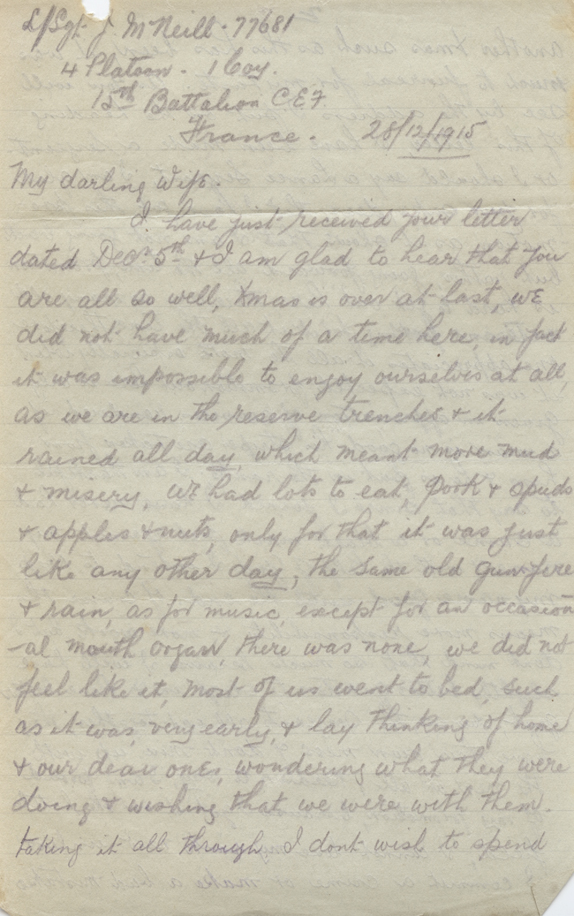 L/Sgt J. McNeill. 77681
4 Platoon. 1 Coy.
15th Battalion C.E.F
France. 28/12/1915
My darling Wife.
I have just received your letter
dated Decr 5th & I am glad to hear that you
are all so well, Xmas is over at last, we
did not have much of a time here, in fact
it was impossible to enjoy ourselves at all,
as we are in the reserve trenches & it
rained all day, which meant more mud
& misery, we had lots to eat, Pork & spuds
& apples & nuts, only for that it was just
like any other day, the same old gunfire
& rain, as for music, except for an occasion
-al mouth organ, there was none, we did not
feel like it, most of us went to bed, such
as it was, very early, & lay thinking of home
& our dear ones, wondering what they were
doing & wishing that we were with them.
taking it all through I dont wish to spend